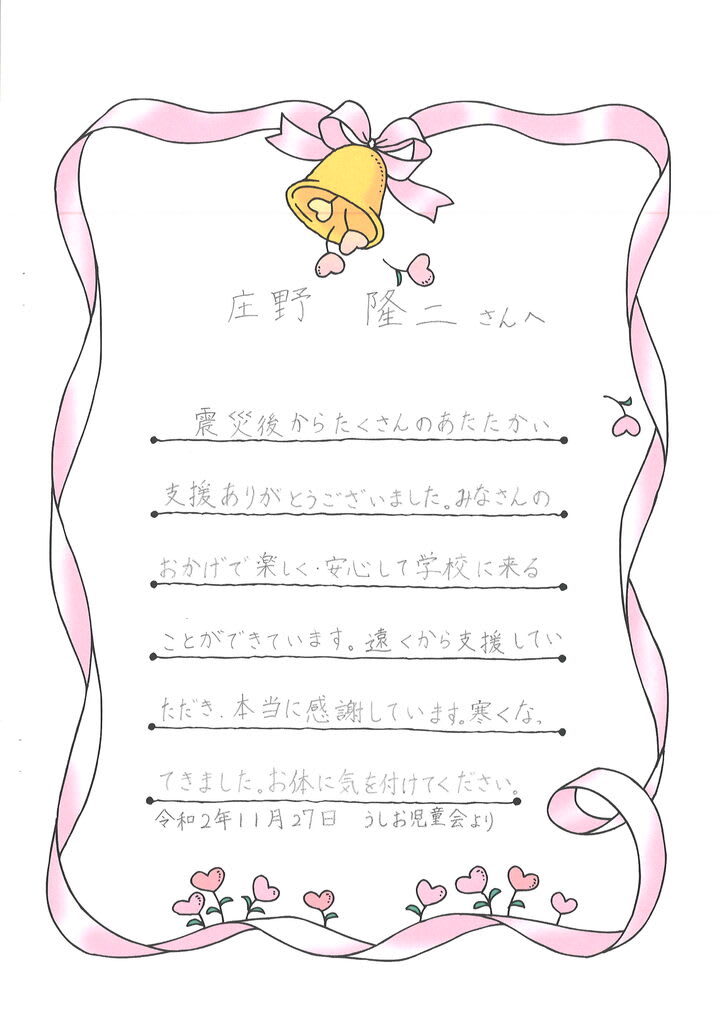 庄野 隆二 さんへ
震災後からたくさんのあたたかい
支援ありがとうございました。みなさんの
おかげで楽しく・安心して学校に来る
ことができています。遠くから支援してい
ただき、本当に感謝しています。寒くなっ
てきました。お体に気を付けてください。
令和2年11月27日 うしお児童会より